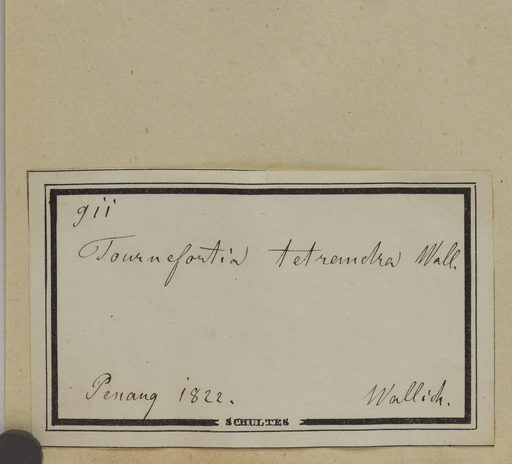 911
Tournefortia tetrandra Wall.
Penang 1822. Wallich.
SCHULTES